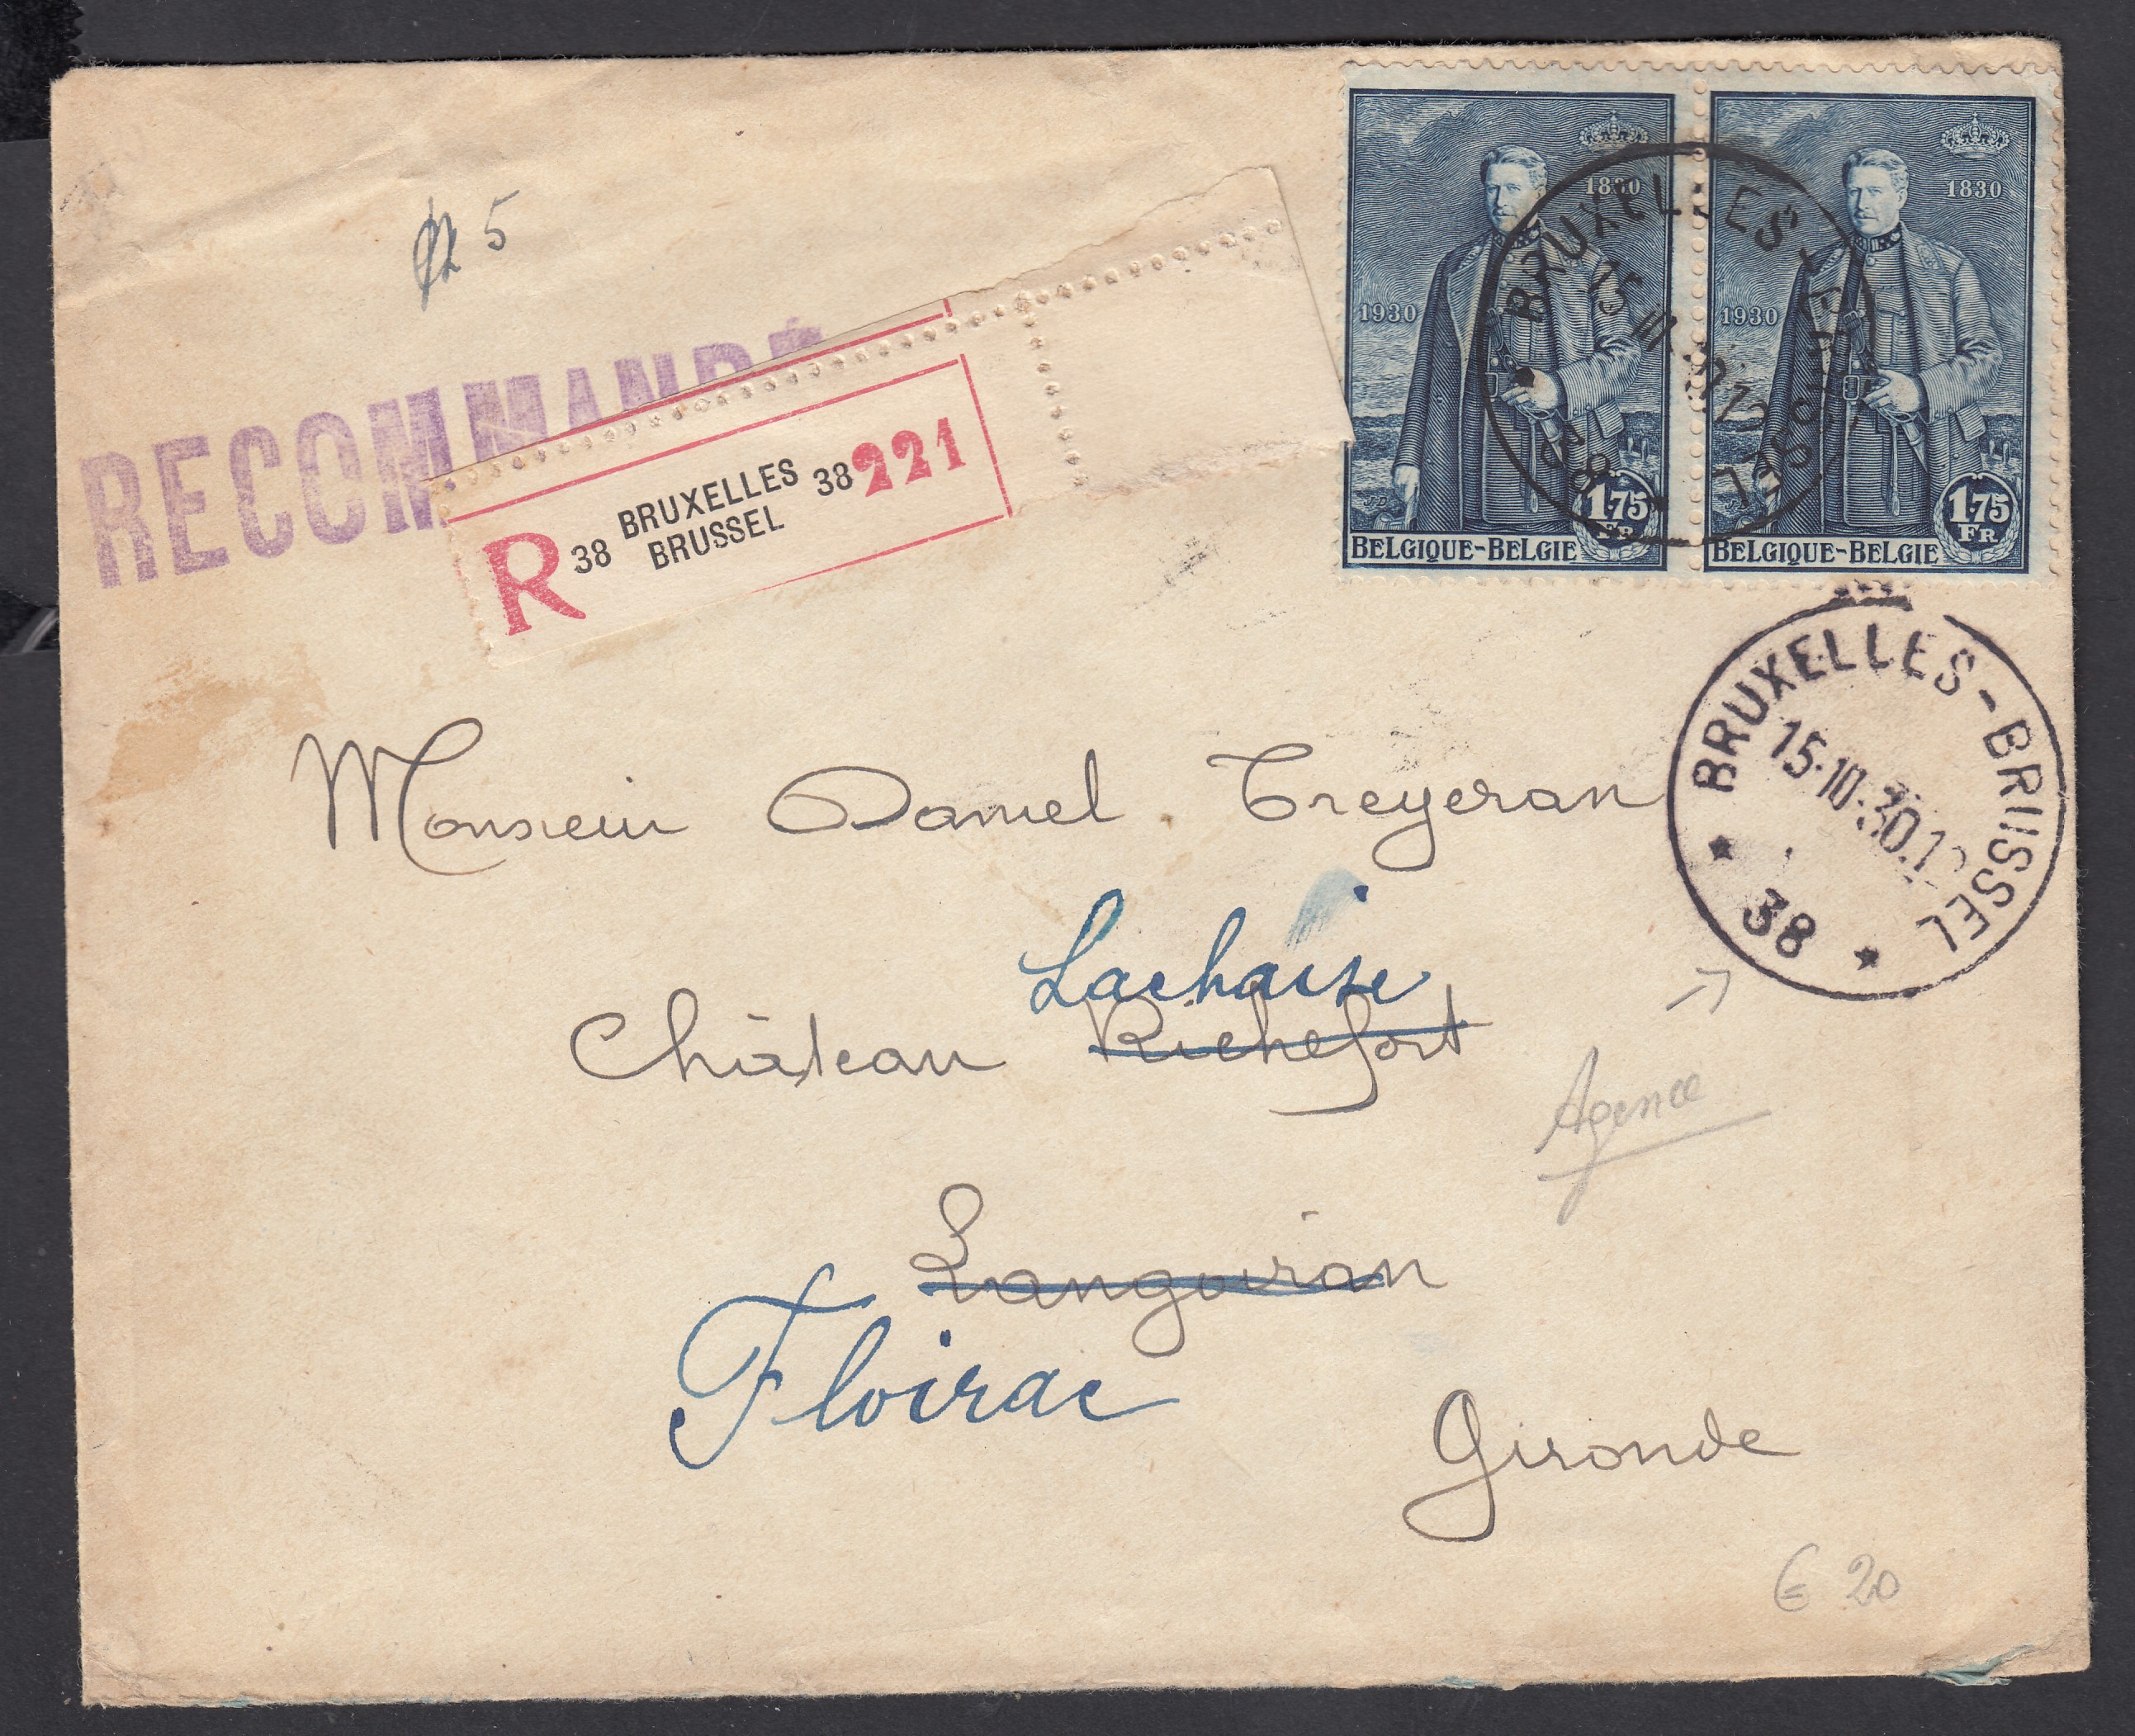 5
RECOMMANDÉ
R 38 BRUXELLES 38 221
BRUSSEL
1830
1930
1.75
FR
BELGIQUE-BELGIE
1830
1930
1.75
FR
BELGIQUE-BELGIE
BRUXELLES-BRUSSEL
38
BRUXELLES-BRUSSEL
15.III.30.
38
Monsieur Daniel Treyeran
Lachaise
Château Richefort
Agence
Langoiran
Floirac
Gironde
€ 20